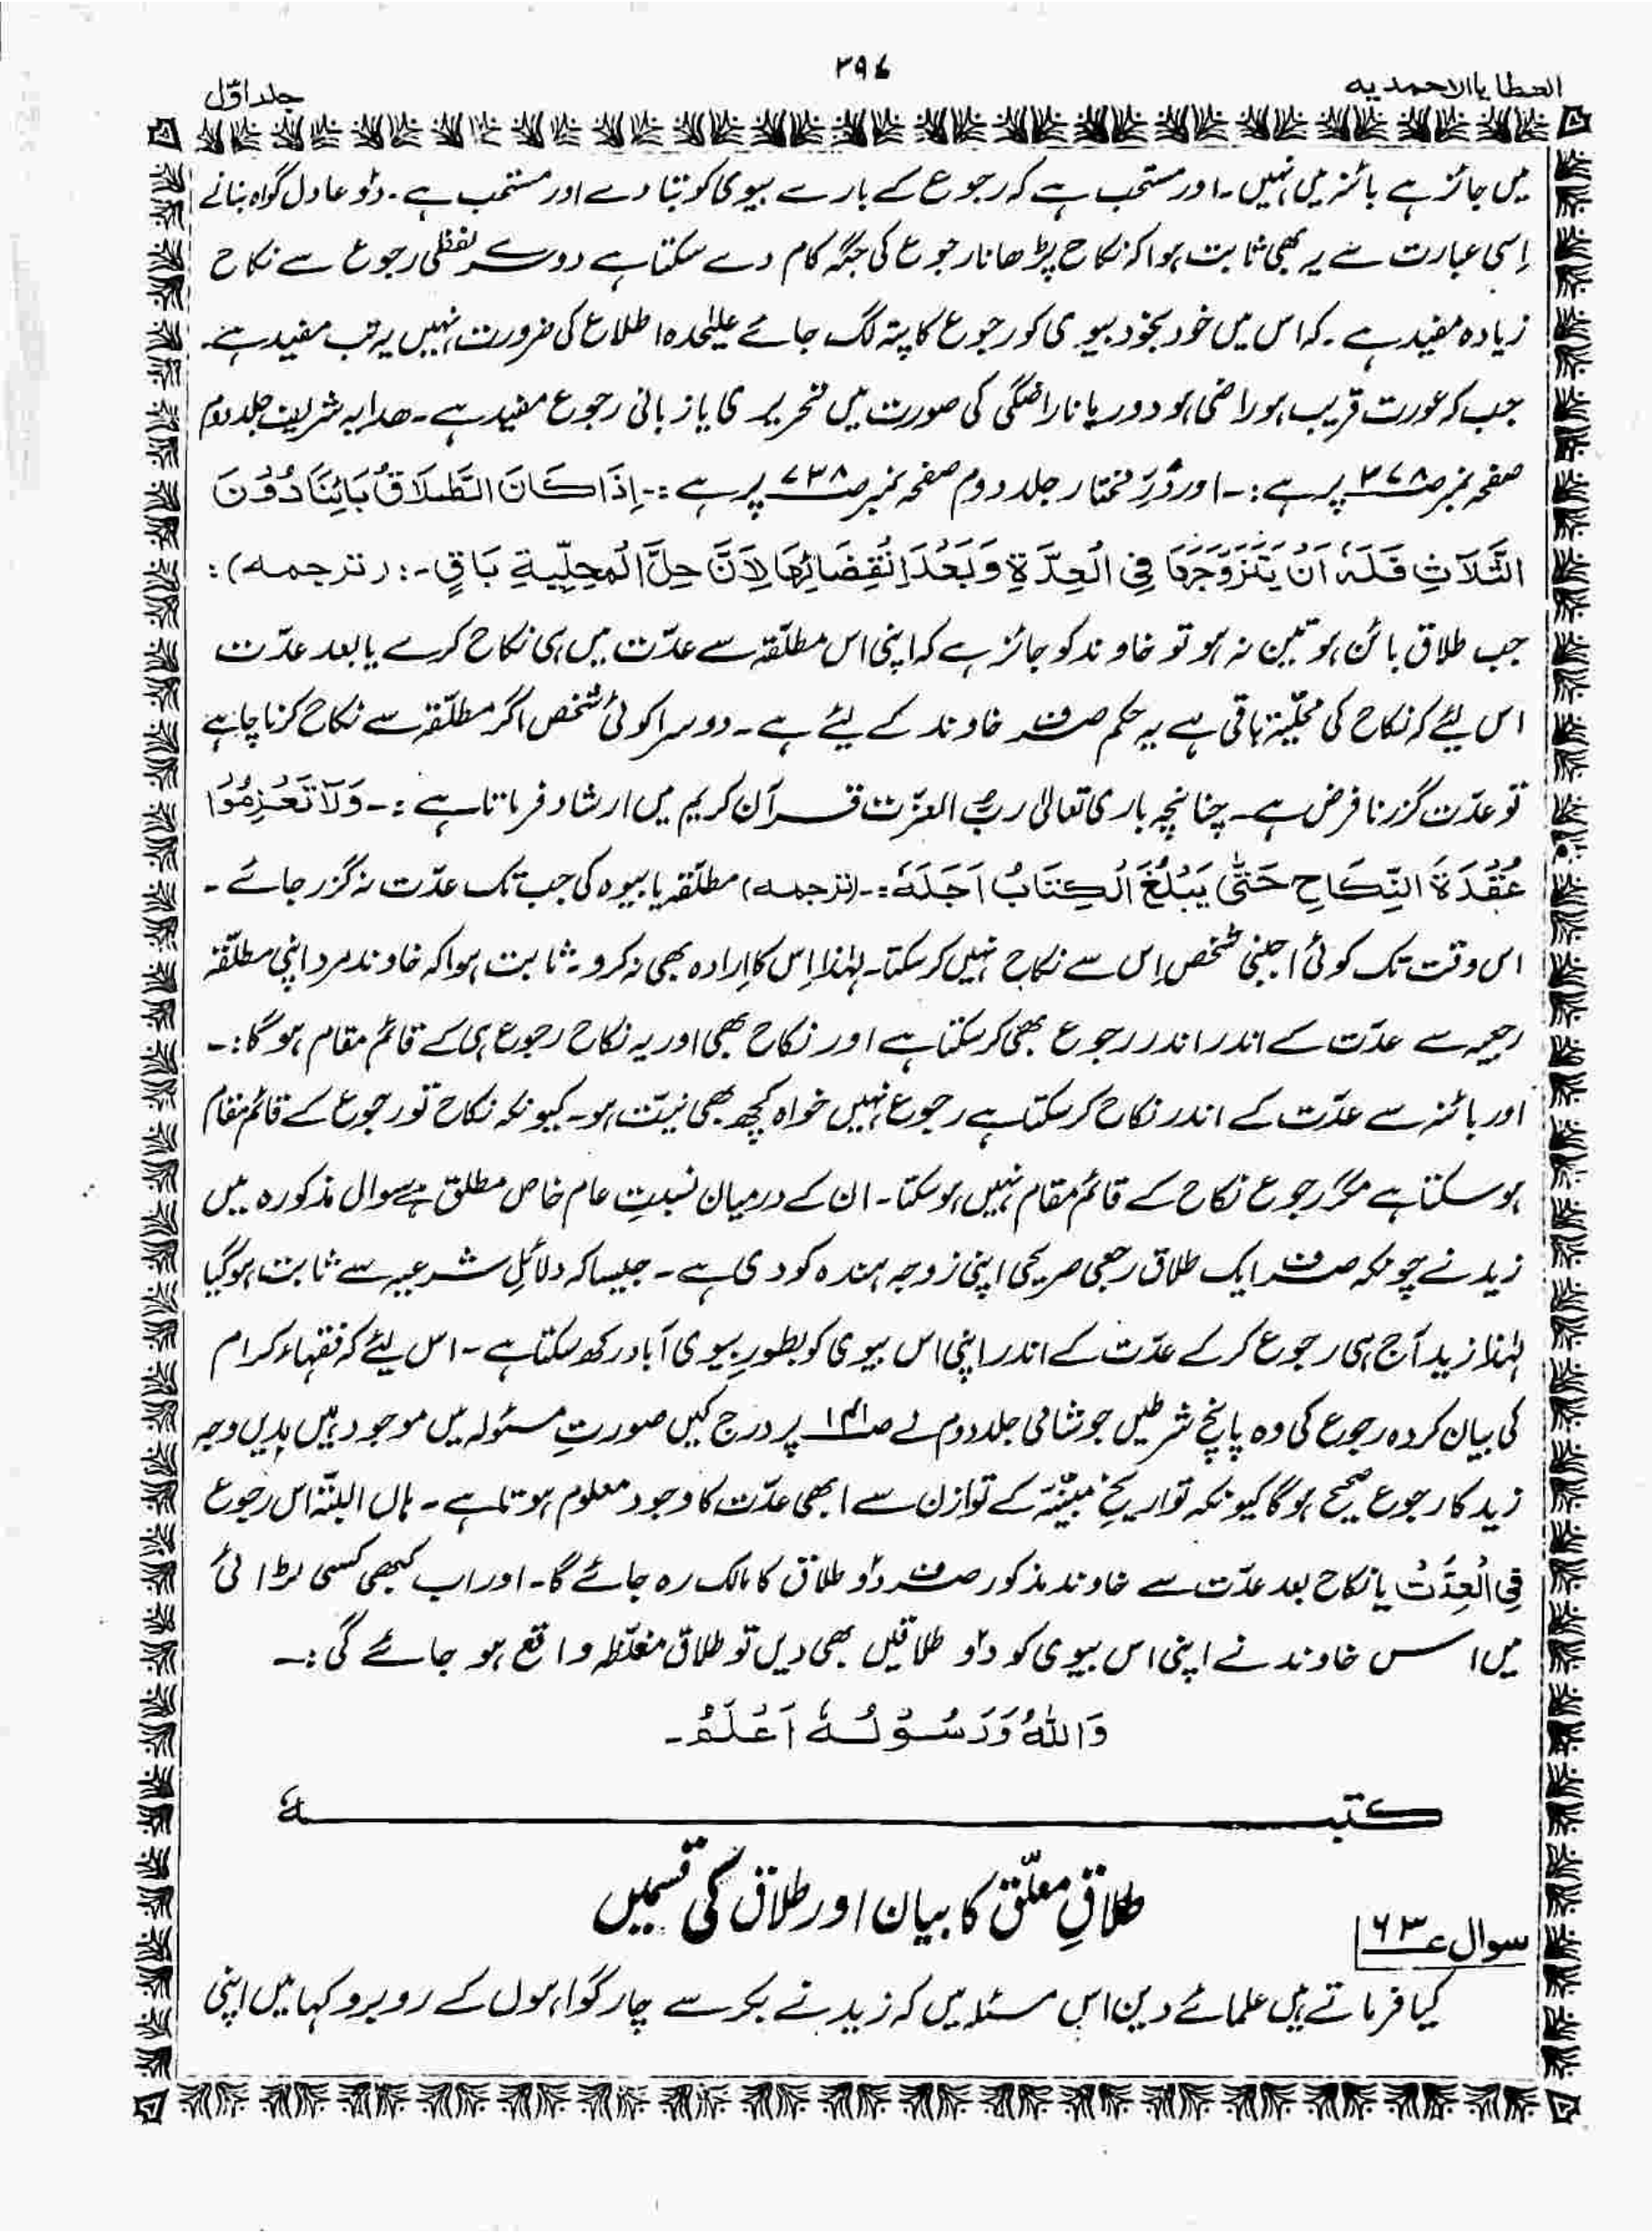 العطایا الاحمدیه
۳۹۷
جلد اوّل
میں جائز ہے بائنہ میں نہیں ۔ اور مستحب ہے کہ رجوع کے بارے بیوی کو بتا دے اور مستحب ہے ۔ دو عادل گواہ بنانے
اِسی عبارت سے یہ بھی ثابت ہوا کہ نکاح پڑھانا رجوع کی جگہ کام دے سکتا ہے دوسرے لفظی رجوع سے نکاح
زیادہ مفید ہے ۔ کہ اس میں خود بخود بیوی کو رجوع کا پتہ لگ جائے علیٰحدہ اطلاع کی ضرورت نہیں یہ تب مفید ہے ۔
جب کہ عورت قریب ہو راضی ہو دور یا ناراضگی کی صورت میں تحریری یا زبانی رجوع مفید ہے ۔ ھدایہ شریف جلد دوم
صفحہ نمبر صـ۳۷۸ پر ہے :۔ اور دُرِّ مختار جلد دوم صفحہ نمبر صـ۷۳۸ پر ہے :۔ اِذَا کَانَ الطَّلَاقُ بَائِنًا دُوْنَ
الثَّلَاثِ فَلَہٗ اَنْ یَتَزَوَّجَہَا فِی الْعِدَّۃِ وَبَعْدَ اِنْقِضَائِہَا لِاَنَّ حِلَّ الْمَحِلِّیۃِ بَاقٍ ۔: (ترجمہ) :
جب طلاق بائن ہو تین نہ ہو تو خاوند کو جائز ہے کہ اپنی اس مطلّقہ سے عدّت میں ہی نکاح کرے یا بعد عدّت
اس لیئے کہ نکاح کی محلّیۃ باقی ہے یہ حکم صرف خاوند کے لیئے ہے ۔ دوسرا کوئی شخص اگر مطلّقہ سے نکاح کرنا چاہے
تو عدّت گزرنا فرض ہے ۔ چنانچہ باری تعالیٰ ربُّ العزّت قرآن کریم میں ارشاد فرماتا ہے :۔ وَلَا تَعْزِمُوْا
عُقْدَۃَ النِّکَاحِ حَتّٰی یَبْلُغَ الْکِتَابُ اَجَلَہٗ :۔ (ترجمہ) مطلّقہ یا بیوہ کی جب تک عدّت نہ گزر جائے ۔
اس وقت تک کوئی اجنبی شخص اِس سے نکاح نہیں کر سکتا ۔ لہٰذا اِس کا اِرادہ بھی نہ کرو ۔ ثابت ہوا کہ خاوند مرد اپنی مطلّقہ
رجعیہ سے عدّت کے اندر اندر رجوع بھی کر سکتا ہے اور نکاح بھی اور یہ نکاح رجوع ہی کے قائم مقام ہو گا :۔
اور بائنہ سے عدّت کے اندر نکاح کر سکتا ہے رجوع نہیں خواہ کچھ بھی نیّت ہو ۔ کیونکہ نکاح تو رجوع کے قائم مقام
ہو سکتا ہے مگر رجوع نکاح کے قائم مقام نہیں ہو سکتا ۔ ان کے درمیان نسبتِ عام خاص مطلق ہے سوال مذکورہ میں
زید نے چونکہ صرف ایک طلاق رجعی صریحی اپنی زوجہ ہندہ کو دی ہے ۔ جیسا کہ دلائلِ شرعیہ سے ثابت ہو گیا
لہٰذا زید آج ہی رجوع کر کے عدّت کے اندر اپنی اس بیوی کو بطورِ بیوی آباد رکھ سکتا ہے ۔ اس لیئے کہ فقہاء کرام
کی بیان کردہ رجوع کی وہ پانچ شرطیں جو شامی جلد دوم نے پر درج کیں صورتِ مسئولہ میں موجود ہیں بدیں وجہ
زید کا رجوع صحیح ہو گا کیونکہ تواریخِ مبیّنہ کے توازن سے ابھی عدّت کا وجود معلوم ہوتا ہے ۔ ہاں البتّہ اس رجوع
فِی الْعِدَّتْ یا نکاح بعد عدّت سے خاوند مذکور صرف دو طلاق کا مالک رہ جائے گا ۔ اور اب کبھی کسی لڑائی
میں اس خاوند نے اپنی اس بیوی کو دو طلاقیں بھی دیں تو طلاق مغلّظہ واقع ہو جائے گی :۔
وَاللّٰہُ وَرَسُوْلُہٗ اَعْلَمُ ۔
کتبہٗ
طلاقِ معلّق کا بیان اور طلاق کی قسمیں
سوال ؏ ۶۳
کیا فرماتے ہیں علمائے دین اس مسئلہ میں کہ زید نے بکر سے چار گواہوں کے روبرو کہا میں اپنی